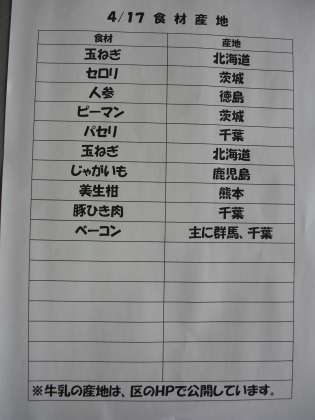 4/17 食材産地
食材 産地
玉ねぎ 北海道
セロリ 茨城
人参 徳島
ピーマン 茨城
パセリ 千葉
玉ねぎ 北海道
じゃがいも 鹿児島
美生柑 熊本
豚ひき肉 千葉
ベーコン 主に群馬、千葉
※牛乳の産地は、区のHPで公開しています。